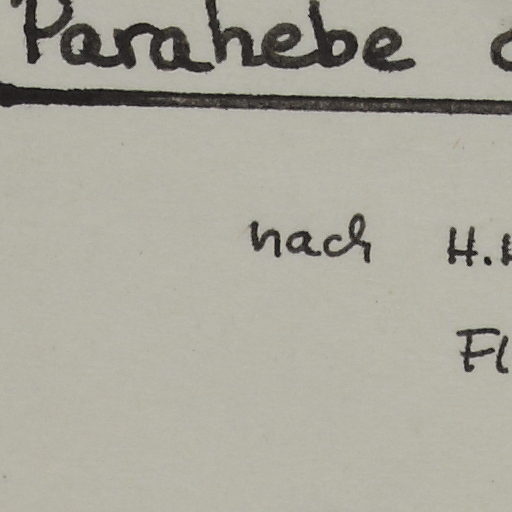 Parahebe
nach H.
Fl